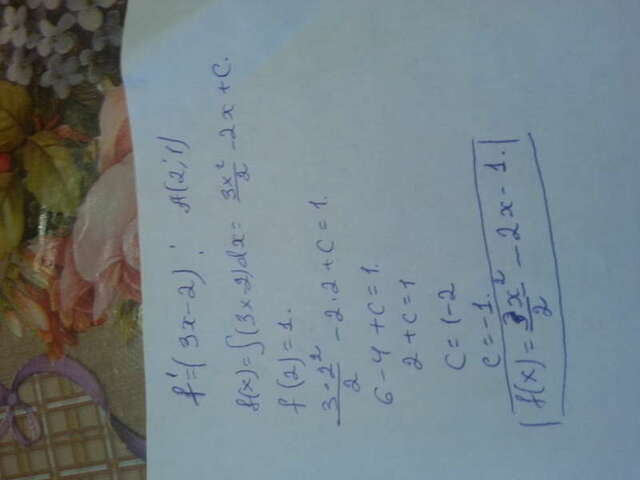 f'=(3x-2); A(2;1)
f(x)=∫(3x-2)dx= 3x²/2 -2x+C.
f(2)=1.
3·2²/2 -2·2+C=1.
6-4+C=1.
2+C=1
C=1-2
C=-1.
f(x)= 3x²/2 -2x-1.